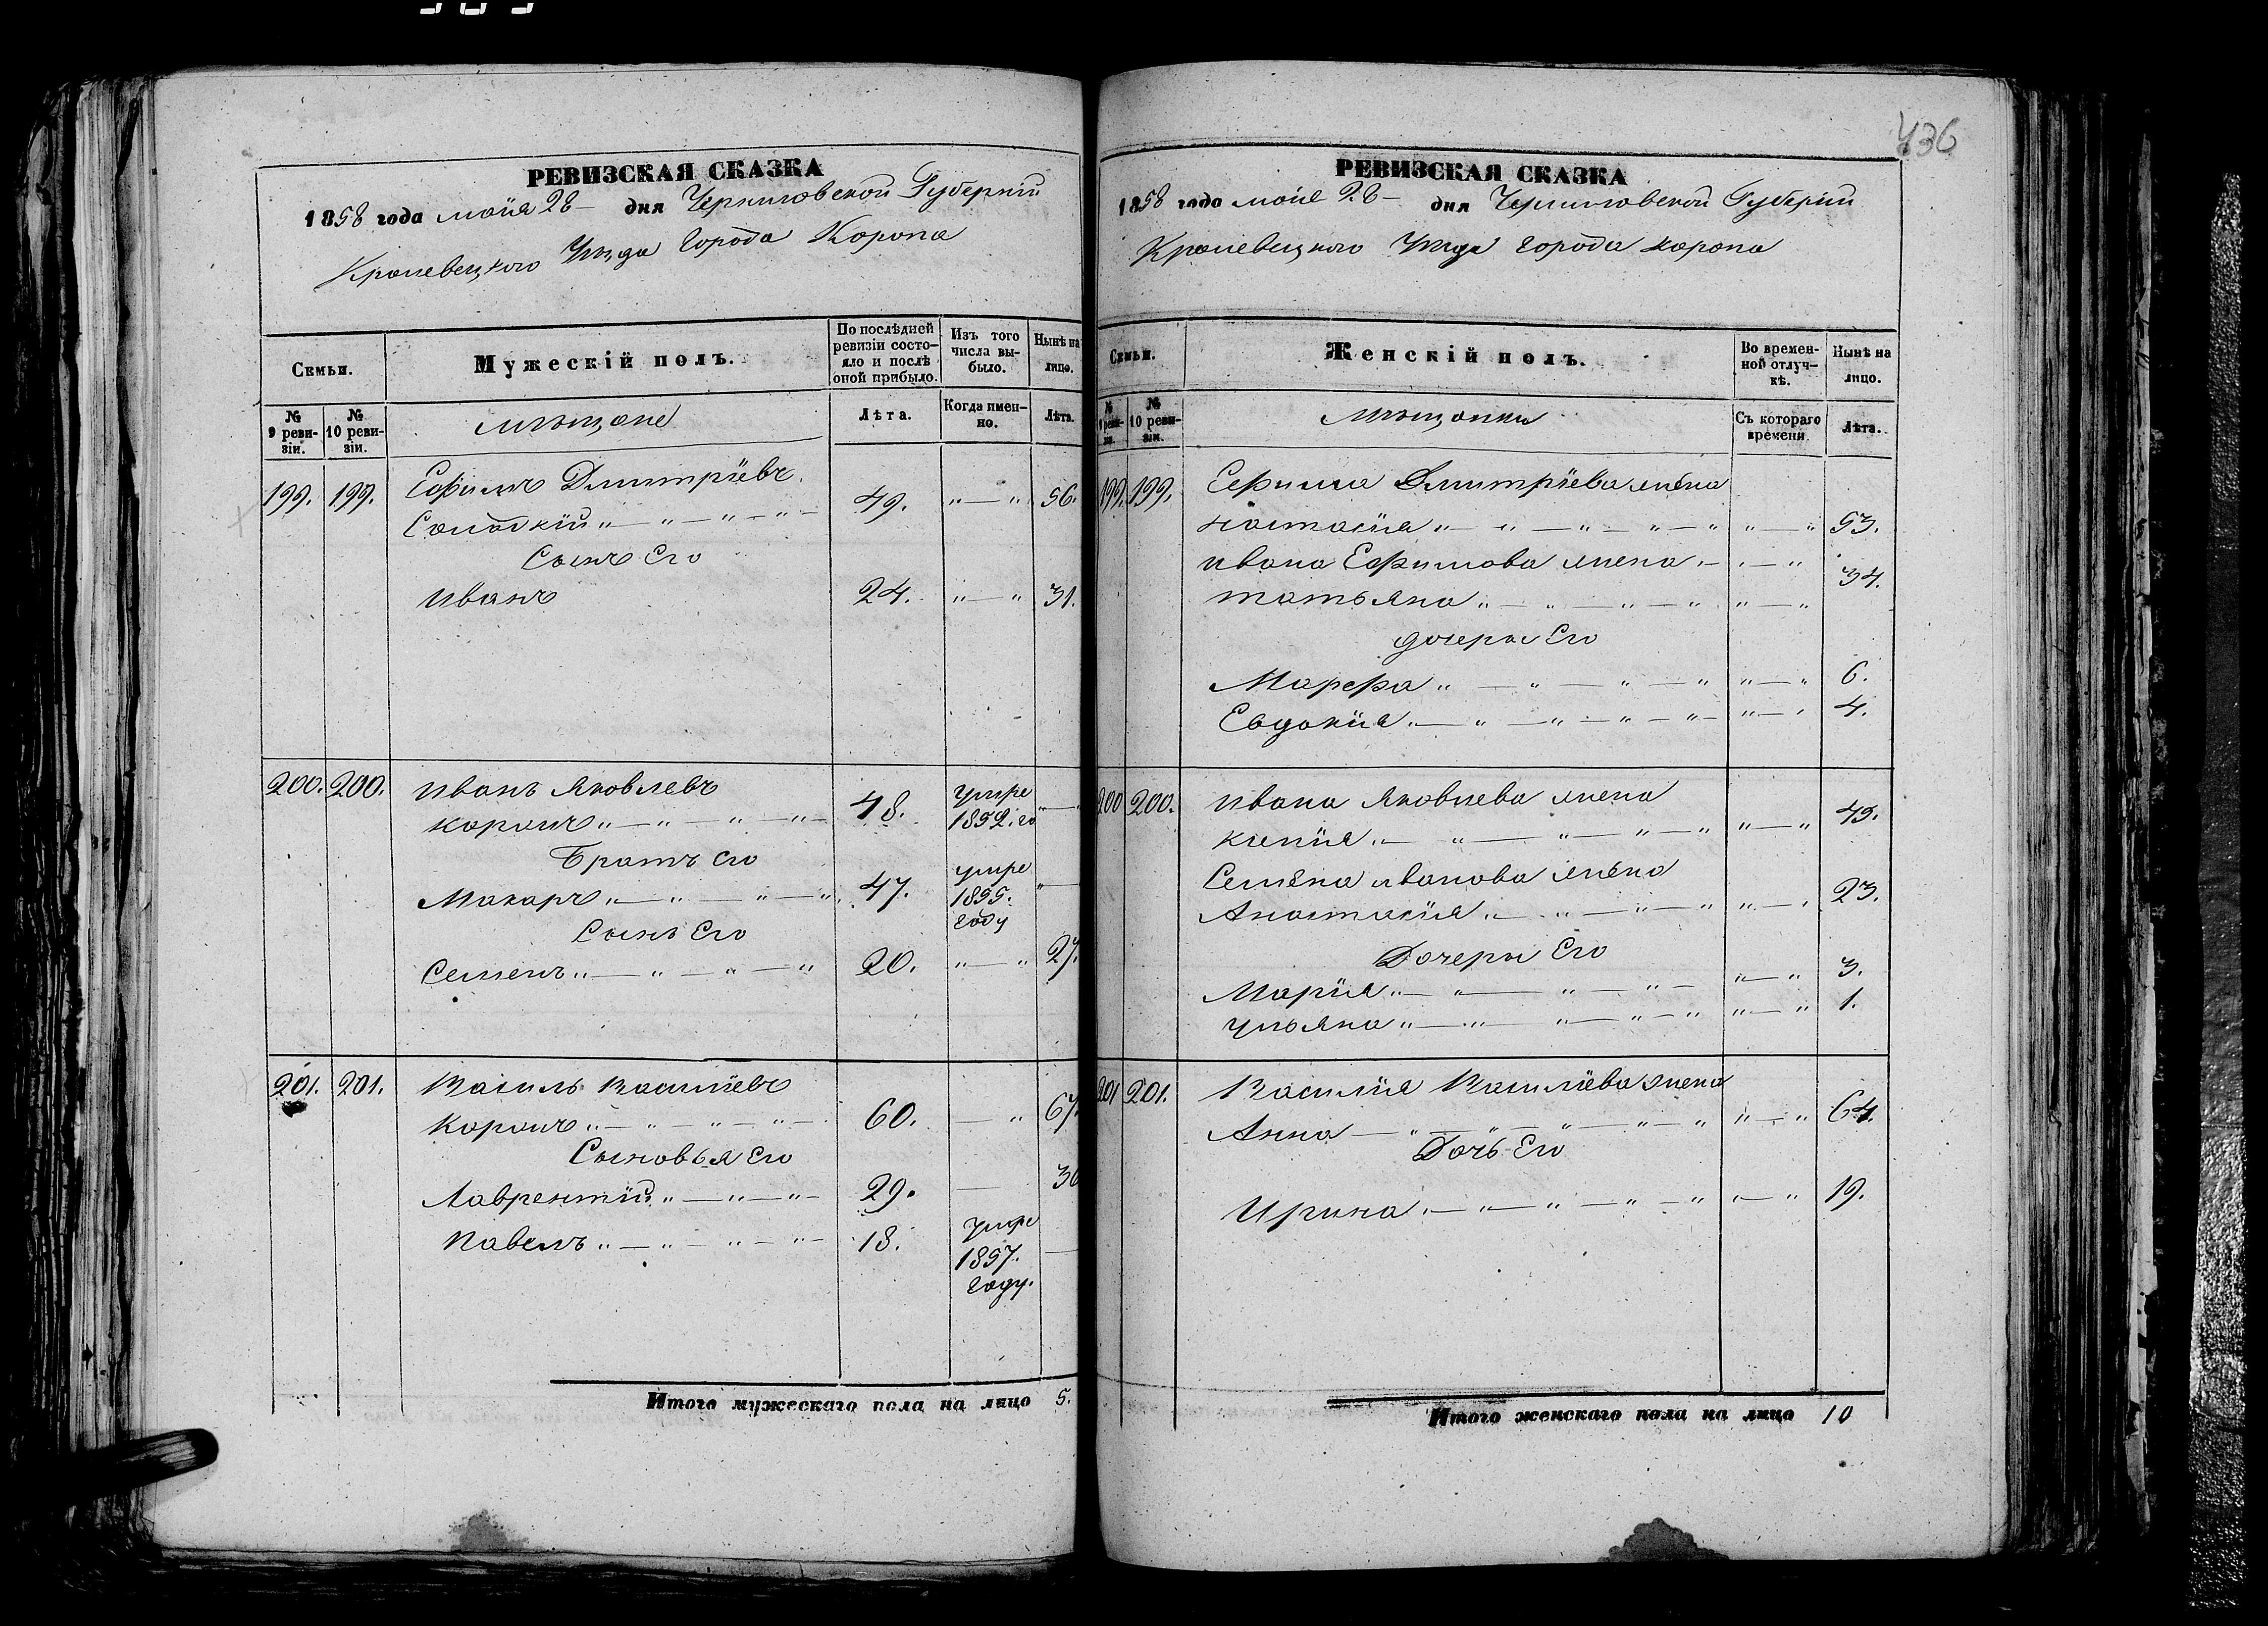 436
РЕВИЗСКАЯ СКАЗКА
1858 года мая 28 – дня Черниговской Губернии
Кролевецкого Уезда Города Коропа
Семьи.
Мужескій полъ.
По послѣдней ревизіи состояло и послѣ оной прибыло.
Изъ того числа выбыло.
Нынѣ на лицо.
№ 9 ревизіи.
№ 10 ревизіи.
мещане
Лѣта.
Когда именно.
Лѣта.
199. 199. Ефимъ Дмитріевъ
49. „ — „ 56.
Сынъ Его
Иванъ 24. „ — „ 31.
200. 200. Иванъ Яковлевъ
Коропъ „ — „ — „ — „ — 48. умре 1852. го „ —
Братъ Его
Макаръ „ — „ — „ — „ 47. умре 1855. году „ —
Сынъ Его
Семенъ „ — „ — „ — „ 20. „ — „ 27.
201. 201. Василь Василіевъ
Коропъ „ — „ — „ — „ — 60. — „ 67.
Сыновья Его
Лаврентій „ — „ — „ — 29. — 36
Павелъ „ — „ — „ — „ — 18. умре 1857. году. —
Итого мужескаго пола на лицо 5.
РЕВИЗСКАЯ СКАЗКА
1858 года мая 28 – дня Черниговской Губернии
Кролевецкого Уезда города коропа
Семьи.
Женскій полъ.
Во временной отлучкѣ.
Нынѣ на лицо.
№ 9 ревизіи.
№ 10 ревизіи.
мещанки
Съ котораго времени.
Лѣта.
199. 199. Ефима Дмитріева жена
настасія „ — „ — „ — „ — „ „ — „ 53.
ивана Ефимова жена – „ — „
татьяна „ — „ — „ — „ „ — „ 34.
дочери Его
Марфа „ — „ — „ — „ „ — „ 6.
Евдокія „ — „ — „ — „ — „ – „ — „ 4.
200 200. ивана Яковлева жена
„ — „ — „ — „ — „ „ — „ 45.
Семена иванова жена
Анастасія „ — „ — „ — „ „ — „ 23.
Дочери Его
Марія „ — „ — „ — „ – „ — „ 3.
ульяна „ — „ — „ — „ — „ „ — „ 1.
201 201. Василія Василіева жена
Анна — „ — „ — „ — „ — „ „ — „ 64.
Дочь Его
Ирина „ — „ — „ — „ — „ „ — „ 19.
Итого женскаго пола на лицо 10